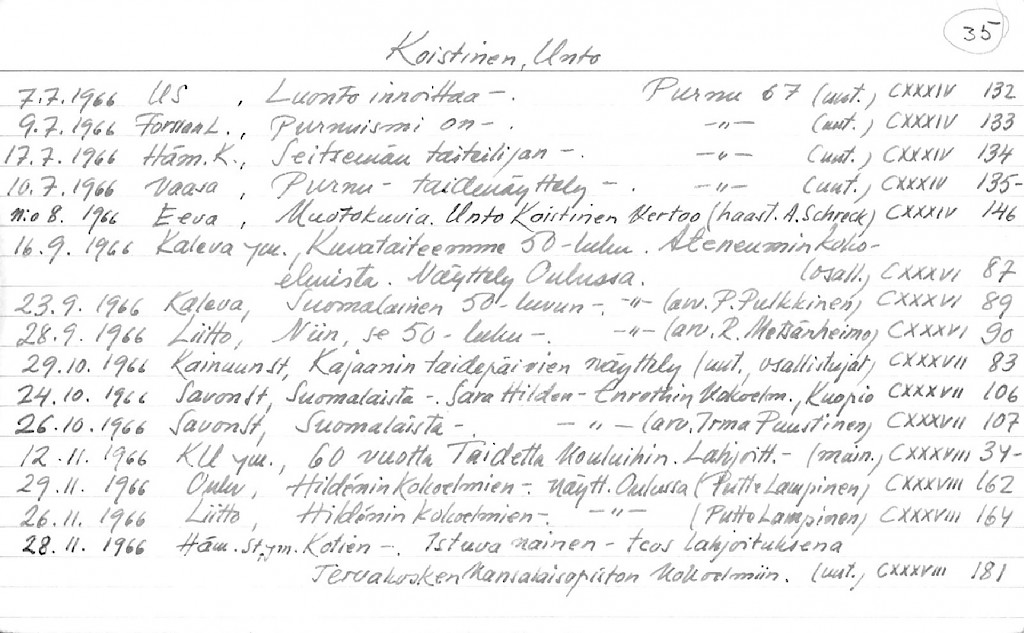 35
Koistinen, Unto
7.7.1966 US , Luonto innoittaa -. Purnu 67 (uut.) CXXXIV 132
9.7.1966 Forssan L., Purnuismi on -. -"- (uut.) CXXXIV 133
17.7.1966 Häm. K., Seitsemän taiteilijan -. -"- (uut.) CXXXIV 134
10.7.1966 Vaasa , Purnu - taidenäyttely -. -"- (uut.) CXXXIV 135-
n:o 8. 1966 Eeva , Muotokuvia. Unto Koistinen kertoo (haast. A. Schreck) CXXXIV 146
16.9.1966 Kaleva ym., Kuvataiteemme 50-luku. Ateneumin koko-
elmista. Näyttely Oulussa. (osall.) CXXXVI 87
23.9.1966 Kaleva, Suomalainen 50-luvun -. -"- (arv. P. Pulkkinen) CXXXVI 89
28.9.1966 Liitto, Niin, se 50-luku -. -"- (arv. R. Metsänheimo) CXXXVI 90
29.10.1966 Kainuunst, Kajaanin taidepäivien näyttely (uut., osallistujat) CXXXVII 83
24.10.1966 Savonst, Suomalaista -. Sara Hildén - Enrothin kokoelm., Kuopio CXXXVII 106
26.10.1966 Savonst, Suomalaista -. -"- (arv. Irma Puustinen) CXXXVII 107
12.11.1966 KU ym., 60 vuotta Taidetta Kouluihin. Lahjoitt. - (main.) CXXXVIII 34-
29.11.1966 Oulu, Hildénin kokoelmien -. näytt. Oulussa (Putte Lampinen) CXXXVIII 162
26.11.1966 Liitto, Hildénin kokoelmien -. -"- (Putte Lampinen) CXXXVIII 164
28.11.1966 Häm. st, ym. Kotien -. Istuva nainen - teos lahjoituksena
Tervakosken Kansalaisopiston kokoelmiin. (uut.) CXXXVIII 181